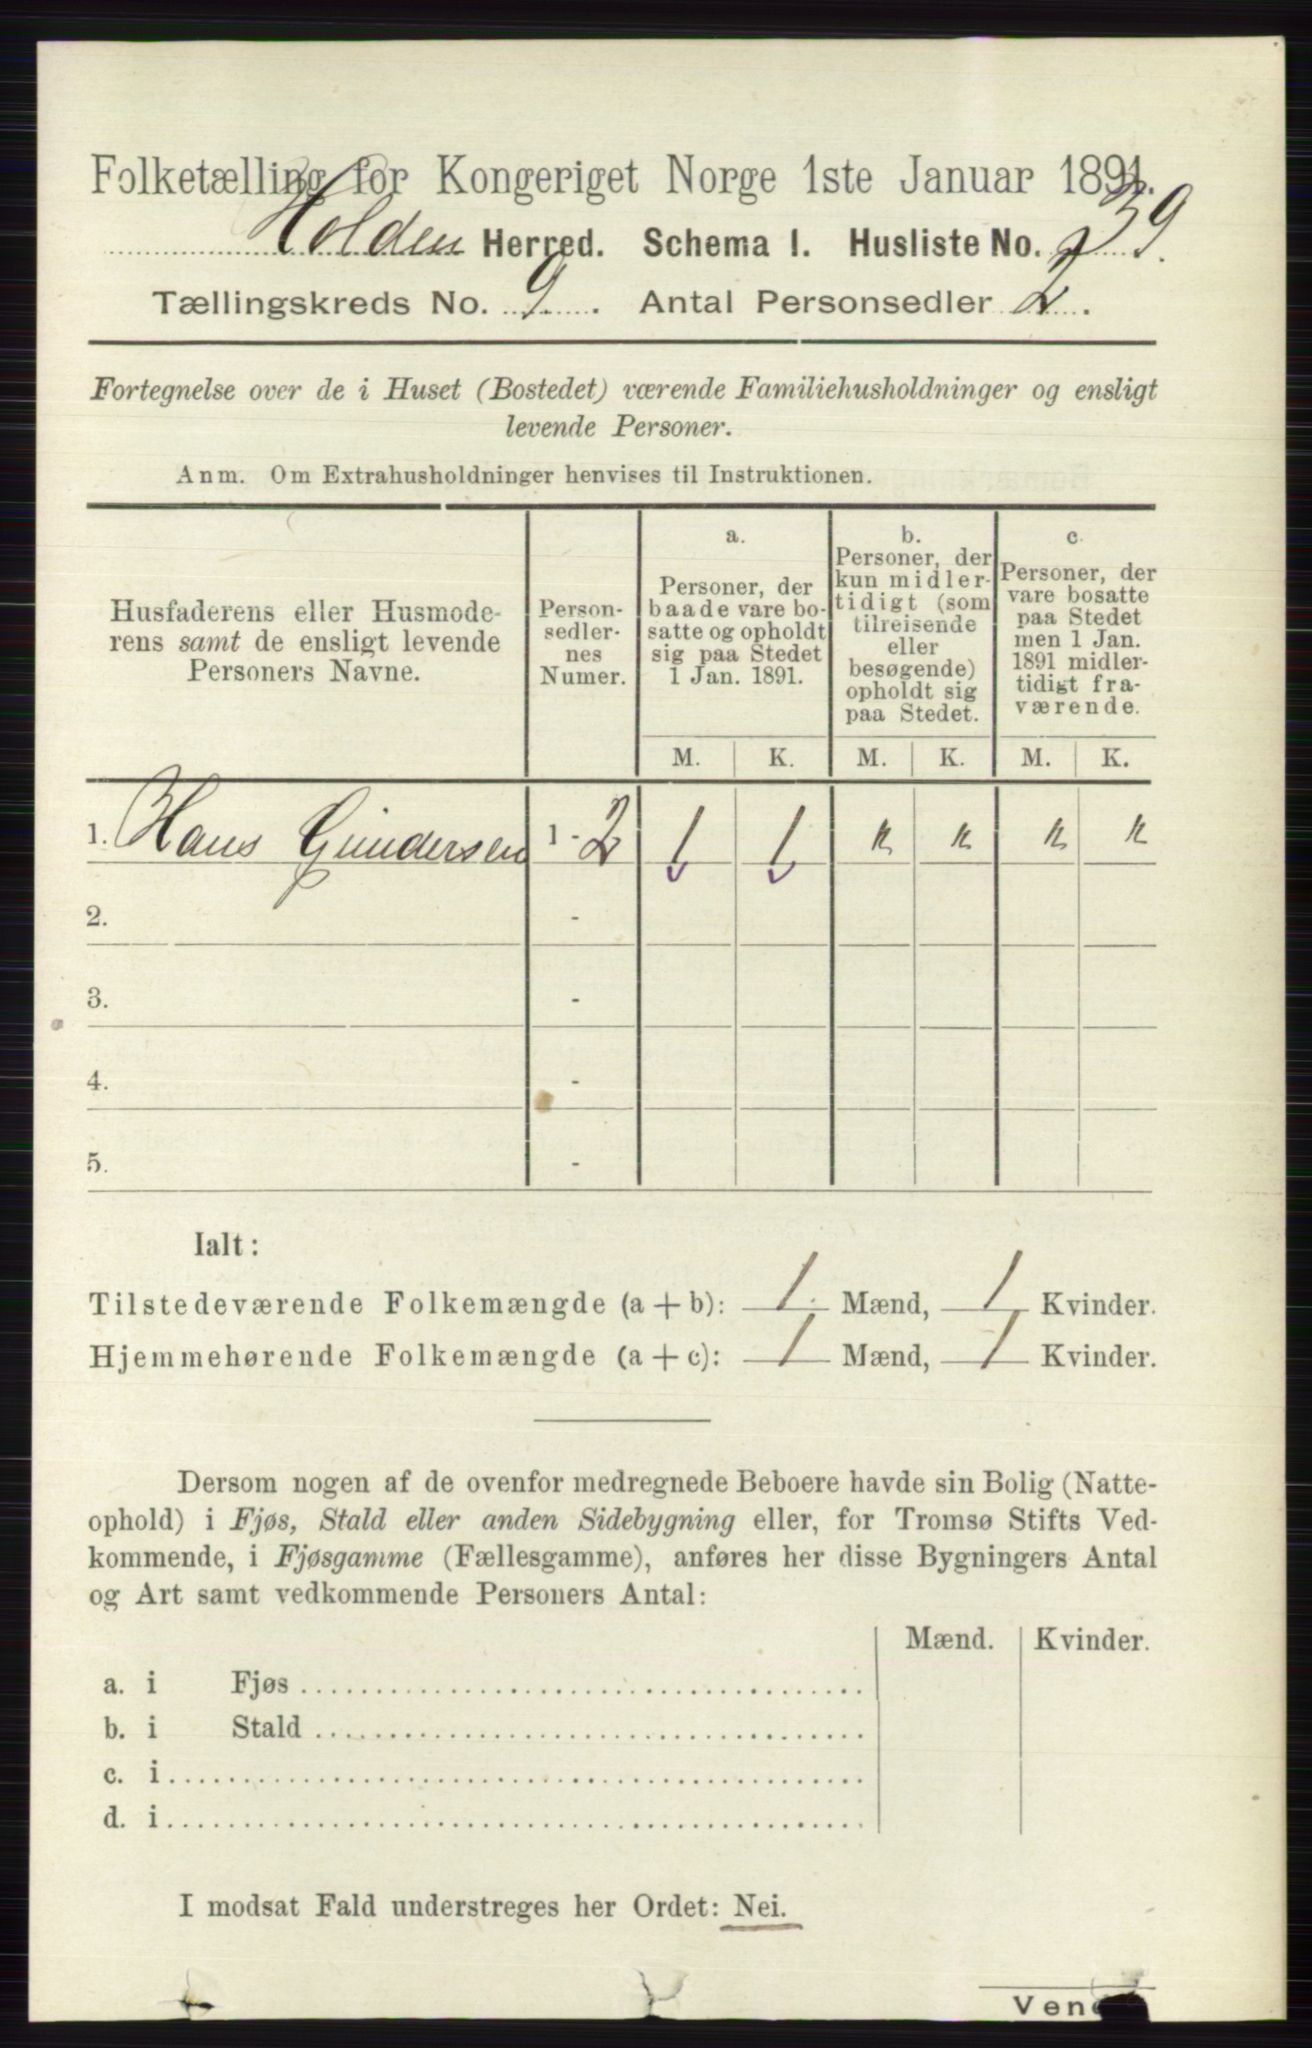 Folketælling for Kongeriget Norge 1ste Januar 1891.
Holden Herred. Schema I. Husliste No. 39.
Tællingskreds No. 9. Antal Personsedler 2.
Fortegnelse over de i Huset (Bostedet) værende Familiehusholdninger og ensligt
levende Personer.
Anm. Om Extrahusholdninger henvises til Instruktionen.
Husfaderens eller Husmode-
rens samt de ensligt levende
Personers Navne.
Person-
sedler-
nes
Numer.
a.
Personer, der
baade vare bo-
satte og opholdt
sig paa Stedet
1 Jan. 1891.
b.
Personer, der
kun midler-
tidigt (som
tilreisende
eller
besøgende)
opholdt sig
paa Stedet.
c.
Personer, der
vare bosatte
paa Stedet
men 1 Jan.
1891 midler-
tidigt fra-
værende.
M. K. M. K. M. K.
1. Hans Gundersen 1 - 2 1 1 " " " "
2. -
3. -
4. -
5. -
Ialt:
Tilstedeværende Folkemængde (a + b): 1 Mænd, 1 Kvinder.
Hjemmehørende Folkemængde (a + c): 1 Mænd, 1 Kvinder.
Dersom nogen af de ovenfor medregnede Beboere havde sin Bolig (Natte-
ophold) i Fjøs, Stald eller anden Sidebygning eller, for Tromsø Stifts Ved-
kommende, i Fjøsgamme (Fællesgamme), anføres her disse Bygningers Antal
og Art samt vedkommende Personers Antal:
Mænd. Kvinder.
a. i Fjøs
b. i Stald
c. i
d. i
I modsat Fald understreges her Ordet: Nei.